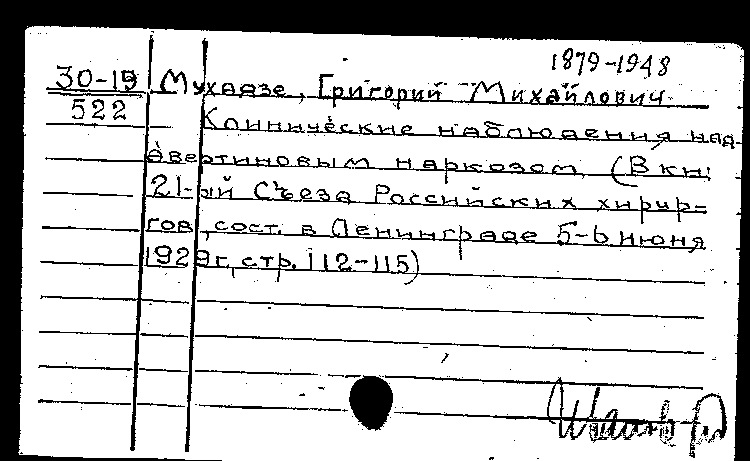 1879-1948
30-19 Мухадзе, Григорий Михайлович.
522
Клинические наблюдения над
авертиновым наркозом. (В кн:
21-ый Съезд Российских хирур-
гов, сост. в Ленинграде 5-6 июня
1929г, стр. 112-115)